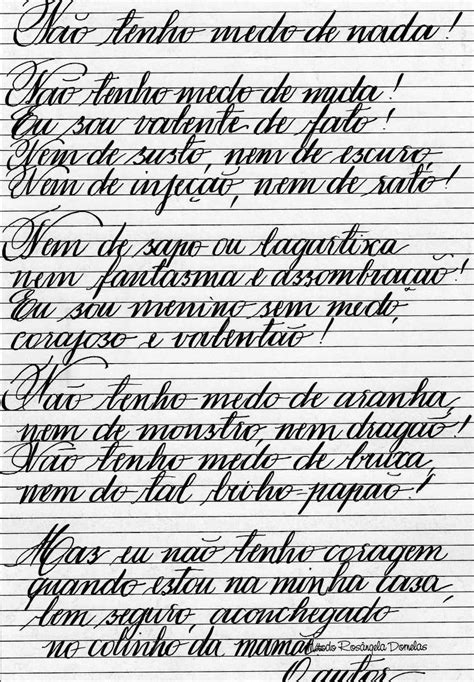 Não tenho medo de nada!
Não tenho medo de nada!
Eu sou valente de fato!
Nem de susto, nem de escuro,
Nem de injeção, nem de rato!
Nem de sapo ou lagartixa
nem fantasma e assombração!
Eu sou menino sem medo,
corajoso e valentão!
Não tenho medo de aranha,
nem de monstro, nem dragão!
Não tenho medo de bruxa
nem do tal bicho-papão!
Mas eu não tenho coragem
quando estou na minha casa,
bem seguro, aconchegado
no colinho da mamãe
Método Rosângela Dornelas
O autor